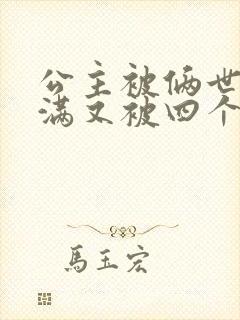 公主被俩世
满又被四个
馬玉宏